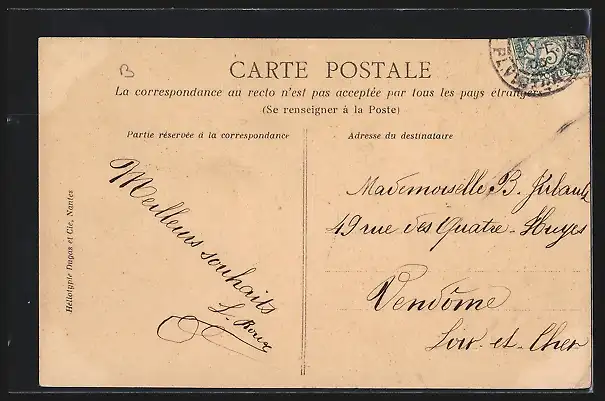 B
CARTE POSTALE
La correspondance au recto n'est pas acceptée par tous les pays étrangers
(Se renseigner à la Poste)
Partie réservée à la correspondance
Adresse du destinataire
Meilleurs souhaits
L. Roux
Mademoiselle B.
19 rue des Quatre-Huyes
Vendôme
Loir-et-Cher
Héliotypie Dugas et Cie, Nantes
5